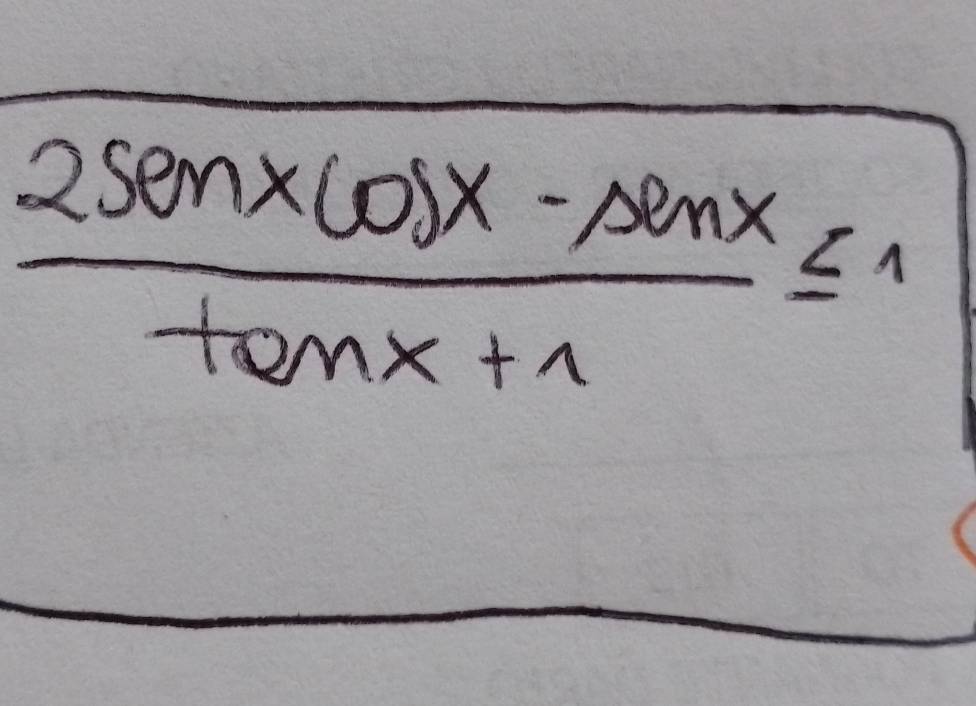 2senxcosx - senx ≤ 1
tanx + 1